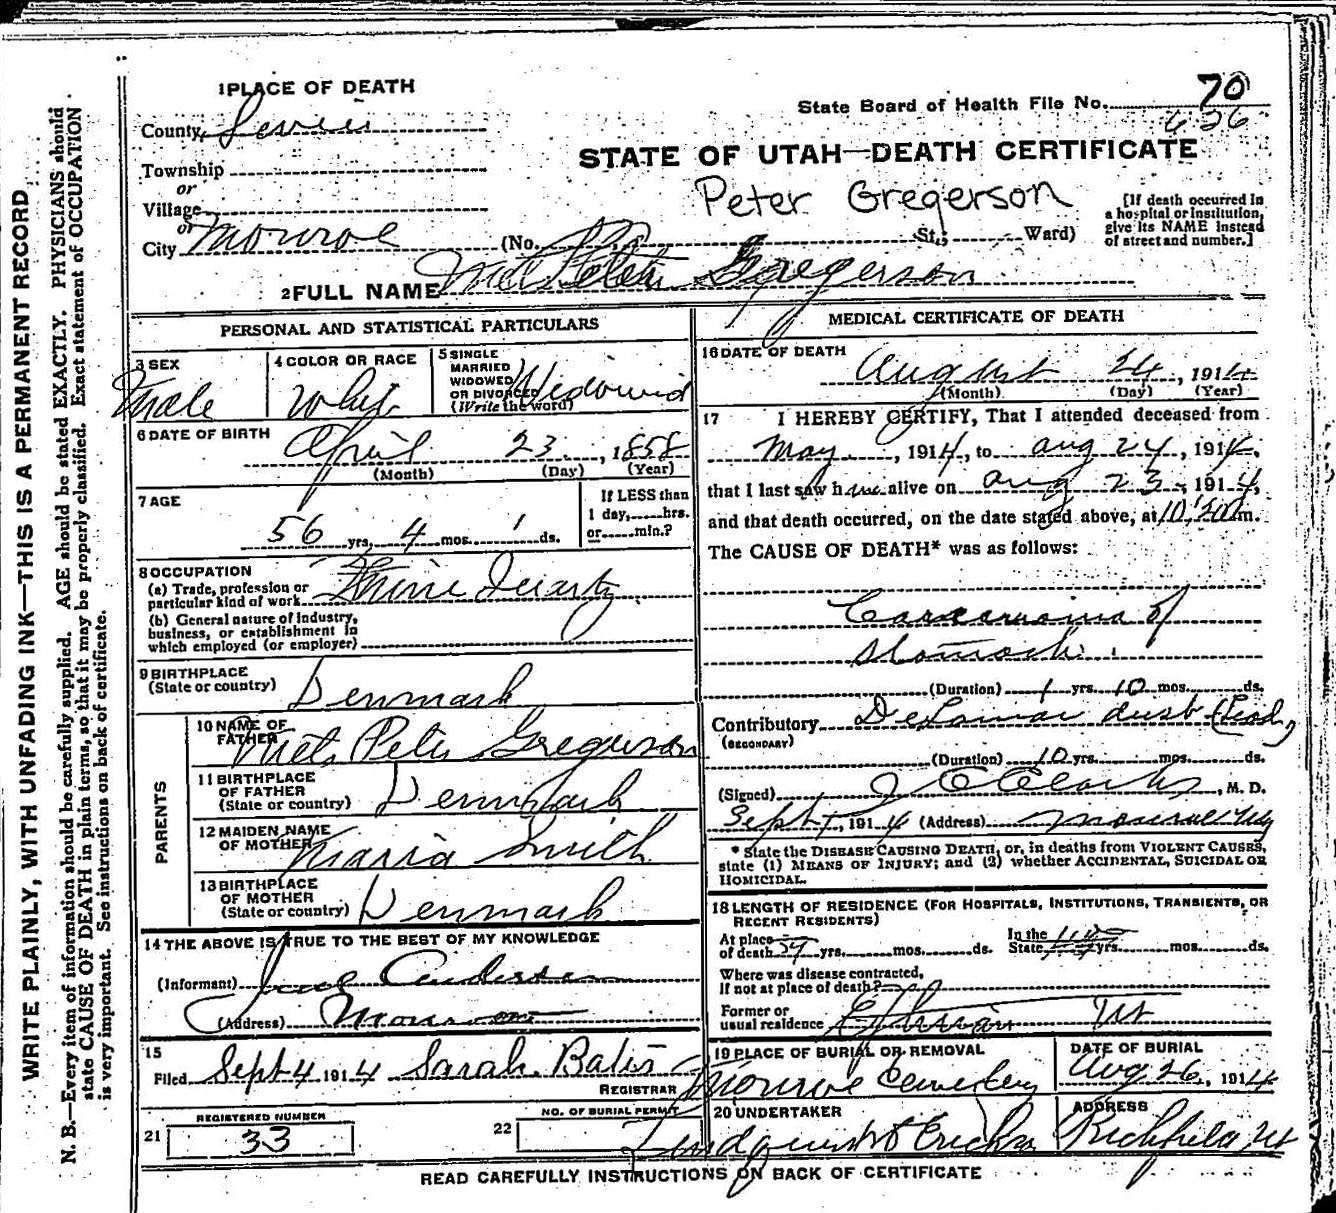 1 PLACE OF DEATH
State Board of Health File No. 70
626
County, Sevier
STATE OF UTAH—DEATH CERTIFICATE
Township
or
Village
or
City Monroe
Peter Gregerson
(No. St.; Ward)
[If death occurred in
a hospital or institution,
give its NAME instead
of street and number.]
2 FULL NAME Peter Gregerson
PERSONAL AND STATISTICAL PARTICULARS
3 SEX
Male
4 COLOR OR RACE
White
5 SINGLE
MARRIED
WIDOWED
OR DIVORCED
(Write the word)
Widowed
6 DATE OF BIRTH
April 23, 1858
(Month) (Day) (Year)
7 AGE
56 yrs. 4 mos. 1 ds.
If LESS than
1 day, hrs.
or min.?
8 OCCUPATION
(a) Trade, profession or
particular kind of work
(b) General nature of Industry,
business, or establishment in
which employed (or employer)
9 BIRTHPLACE
(State or country) Denmark
PARENTS
10 NAME OF
FATHER Peter Gregerson
11 BIRTHPLACE
OF FATHER
(State or country) Denmark
12 MAIDEN NAME
OF MOTHER Maria Smith
13 BIRTHPLACE
OF MOTHER
(State or country) Denmark
14 THE ABOVE IS TRUE TO THE BEST OF MY KNOWLEDGE
(Informant) Andersen
(Address) Monroe
15
Filed Sept 4 1914 Sarah Bates
REGISTRAR
REGISTERED NUMBER
21 33
NO. OF BURIAL PERMIT
22
MEDICAL CERTIFICATE OF DEATH
16 DATE OF DEATH
August 24, 1914
(Month) (Day) (Year)
17 I HEREBY CERTIFY, That I attended deceased from
May, 1914, to Aug 24, 1914,
that I last saw him alive on Aug 23, 1914,
and that death occurred, on the date stated above, at 10:20 m.
The CAUSE OF DEATH* was as follows:
Carcenoma of
Stomach.
(Duration) 1 yrs. 10 mos. ds.
Contributory DeLamar dust (Lead)
(SECONDARY)
(Duration) 10 yrs. mos. ds.
(Signed) , M. D.
Sept 1, 1914 (Address)
* State the DISEASE CAUSING DEATH, or, in deaths from VIOLENT CAUSES,
state (1) MEANS OF INJURY; and (2) whether ACCIDENTAL, SUICIDAL OR
HOMICIDAL.
18 LENGTH OF RESIDENCE (FOR HOSPITALS, INSTITUTIONS, TRANSIENTS, OR
RECENT RESIDENTS)
At place
of death yrs. mos. ds.
In the
State yrs. mos. ds.
Where was disease contracted,
If not at place of death?
Former or
usual residence Ephraim Ut
19 PLACE OF BURIAL OR REMOVAL
Monroe Cemetery
DATE OF BURIAL
Aug 26, 1914
20 UNDERTAKER
ADDRESS
Richfield, Ut
READ CAREFULLY INSTRUCTIONS ON BACK OF CERTIFICATE
WRITE PLAINLY, WITH UNFADING INK—THIS IS A PERMANENT RECORD
N. B.—Every item of information should be carefully supplied. AGE should be stated EXACTLY. PHYSICIANS should
state CAUSE OF DEATH in plain terms, so that it may be properly classified. Exact statement of OCCUPATION
is very important. See instructions on back of certificate.